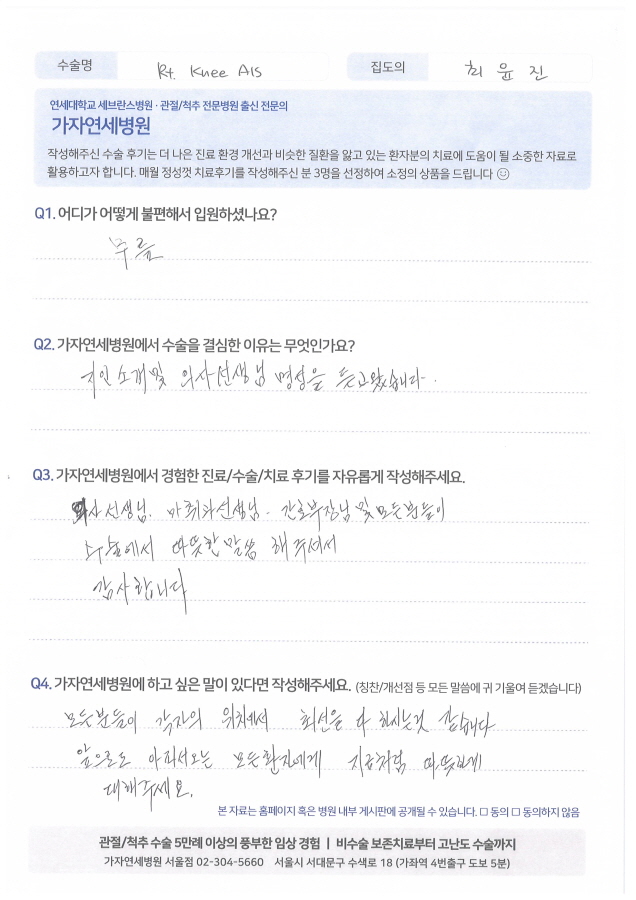 수술명 Rt. Knee A/S 집도의 최윤진
연세대학교 세브란스병원 · 관절/척추 전문병원 출신 전문의
가자연세병원
작성해주신 수술 후기는 더 나은 진료 환경 개선과 비슷한 질환을 앓고 있는 환자분의 치료에 도움이 될 소중한 자료로
활용하고자 합니다. 매월 정성껏 치료후기를 작성해주신 분 3명을 선정하여 소정의 상품을 드립니다 ☺
Q1. 어디가 어떻게 불편해서 입원하셨나요?
무릎
Q2. 가자연세병원에서 수술을 결심한 이유는 무엇인가요?
지인 소개 및 의사선생님 명성을 듣고왔습니다.
Q3. 가자연세병원에서 경험한 진료/수술/치료 후기를 자유롭게 작성해주세요.
의사선생님. 마취과선생님. 간호부장님 및 모든분들이
수술에서 따뜻한 말씀 해주셔서
감사합니다
Q4. 가자연세병원에 하고 싶은 말이 있다면 작성해주세요. (칭찬/개선점 등 모든 말씀에 귀 기울여 듣겠습니다)
모든분들이 각자의 위치에서 최선을 다 하시는것 같습니다
앞으로도 아파서오는 모든환자에게 지금처럼 따뜻하게
대해주세요.
본 자료는 홈페이지 혹은 병원 내부 게시판에 공개될 수 있습니다. □ 동의 □ 동의하지 않음
관절/척추 수술 5만례 이상의 풍부한 임상 경험 | 비수술 보존치료부터 고난도 수술까지
가자연세병원 서울점 02-304-5660 서울시 서대문구 수색로 18 (가좌역 4번출구 도보 5분)